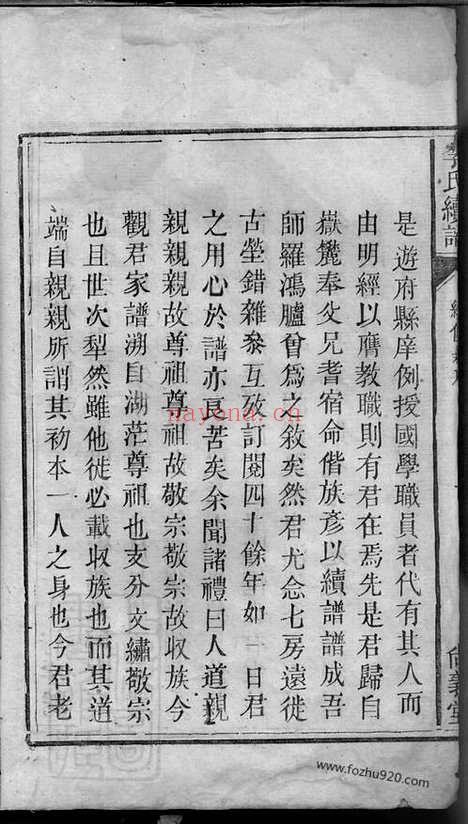 李氏續譜
是遊府縣庠例授國學職員者代有其人而
由明經以膺教職則有君在焉先是君歸自
嶽麓奉父兄耆宿命偕族彥以續譜譜成吾
師羅鴻臚曾為之敘矣然君尤念七房遠徙
古塋錯雜叅互攷訂閱四十餘年如一日君
之用心於譜亦良苦矣余聞諸禮曰人道親
親親親故尊祖尊祖故敬宗敬宗故收族今
觀君家譜溯自湖茫尊祖也支分文繡敬宗
也且世次犁然雖他徙必載収族也而其道
端自親親所謂其初本一人之身也今君老
nayona.cn
www.fozhu920.com